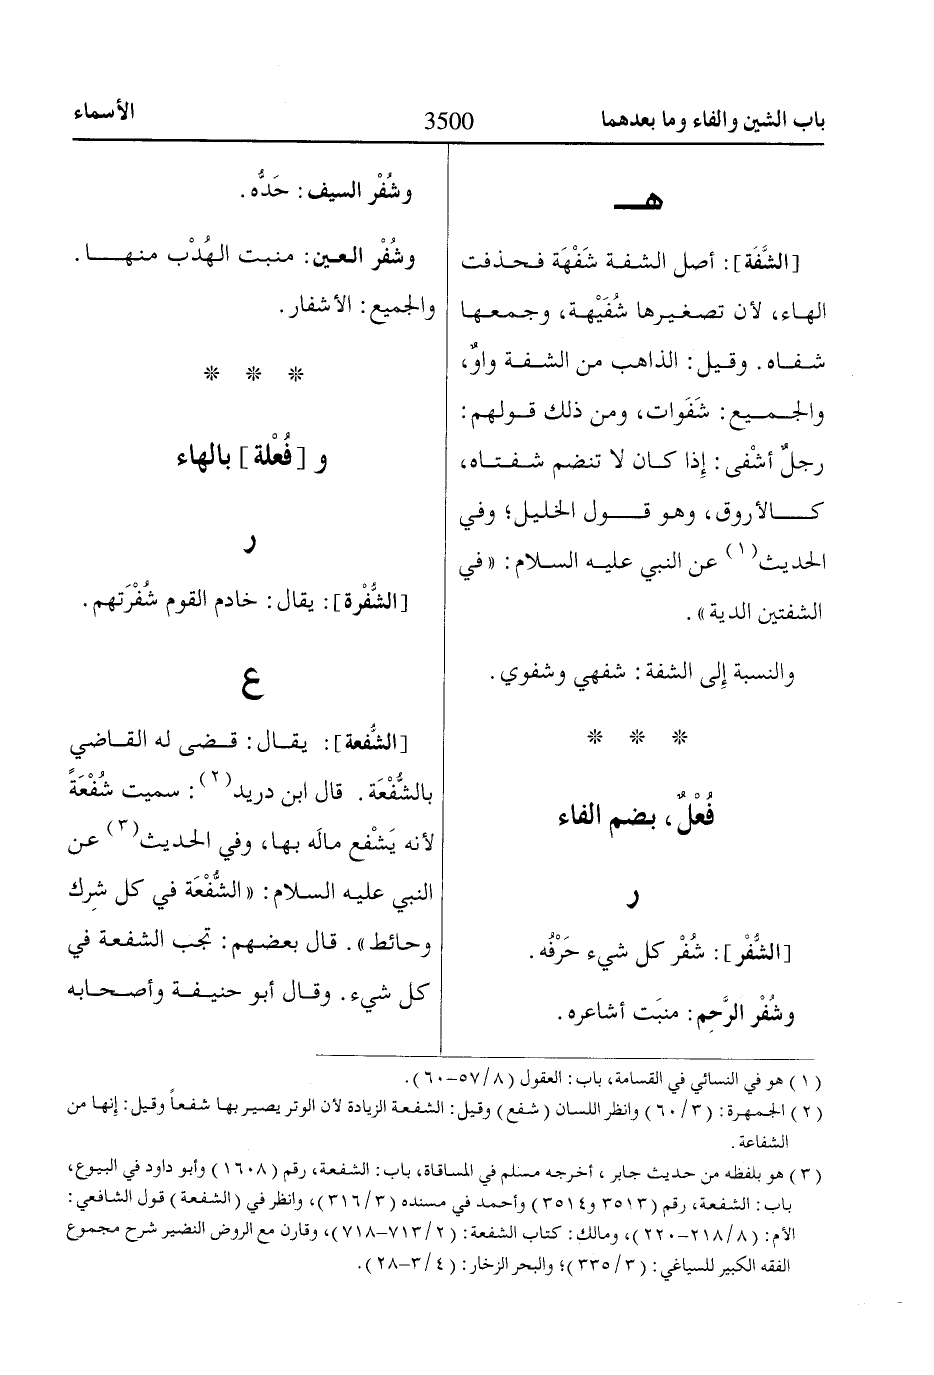 باب الشين والفاء وما بعدهما
3500
الأسماء
هـ
[الشَّفَة]: أصل الشفة شَفْهَة فحذفت
الهاء، لأن تصغيرها شُفَيْهة، وجمعها
شفاه. وقيل: الذاهب من الشفة واوٌ،
والجميع: شَفَوات، ومن ذلك قولهم:
رجلٌ أشْفى: إذا كان لا تنضم شفتاه،
كالأروق، وهو قول الخليل؛ وفي
الحديث(١) عن النبي عليه السلام: «في
الشفتين الدية».
والنسبة إلى الشفة: شفهي وشفوي.
* * *
فُعْلٌ، بضم الفاء
ر
[الشُّفْر]: شُفْر كل شيء حَرْفُه.
وشُفْر الرَّحِم: منبَت أشاعره.
وشُفْر السيف: حَدُّه.
وشُفْر العين: منبت الهُدْب منها.
والجميع: الأشفار.
* * *
و [فُعْلة] بالهاء
ر
[الشُّفْرة]: يقال: خادم القوم شُفْرَتهم.
ع
[الشُّفعة]: يقال: قضى له القاضي
بالشُّفْعَة. قال ابن دريد(٢): سميت شُفْعَةً
لأنه يَشْفع مالَه بها، وفي الحديث(٣) عن
النبي عليه السلام: «الشُّفْعَة في كل شِرك
وحائط». قال بعضهم: تجب الشفعة في
كل شيء. وقال أبو حنيفة وأصحابه
(١) هو في النسائي في القسامة، باب: العقول (٨/٥٧-٦٠).
(٢) الجمهرة: (٣/٦٠) وانظر اللسان (شفع) وقيل: الشفعة الزيادة لأن الوتر يصير بها شفعاً وقيل: إنها من
الشفاعة.
(٣) هو بلفظه من حديث جابر، أخرجه مسلم في المساقاة، باب: الشفعة، رقم (١٦٠٨) وأبو داود في البيوع،
باب: الشفعة، رقم (٣٥١٣ و٣٥١٤) وأحمد في مسنده (٣/٣١٦)، وانظر في (الشفعة) قول الشافعي:
الأم: (٨/٢١٨-٢٢٠)، ومالك: كتاب الشفعة: (٢/٧١٣-٧١٨)، وقارن مع الروض النضير شرح مجموع
الفقه الكبير للسياغي: (٣/٣٣٥)؛ والبحر الزخار: (٤/٣-٢٨).